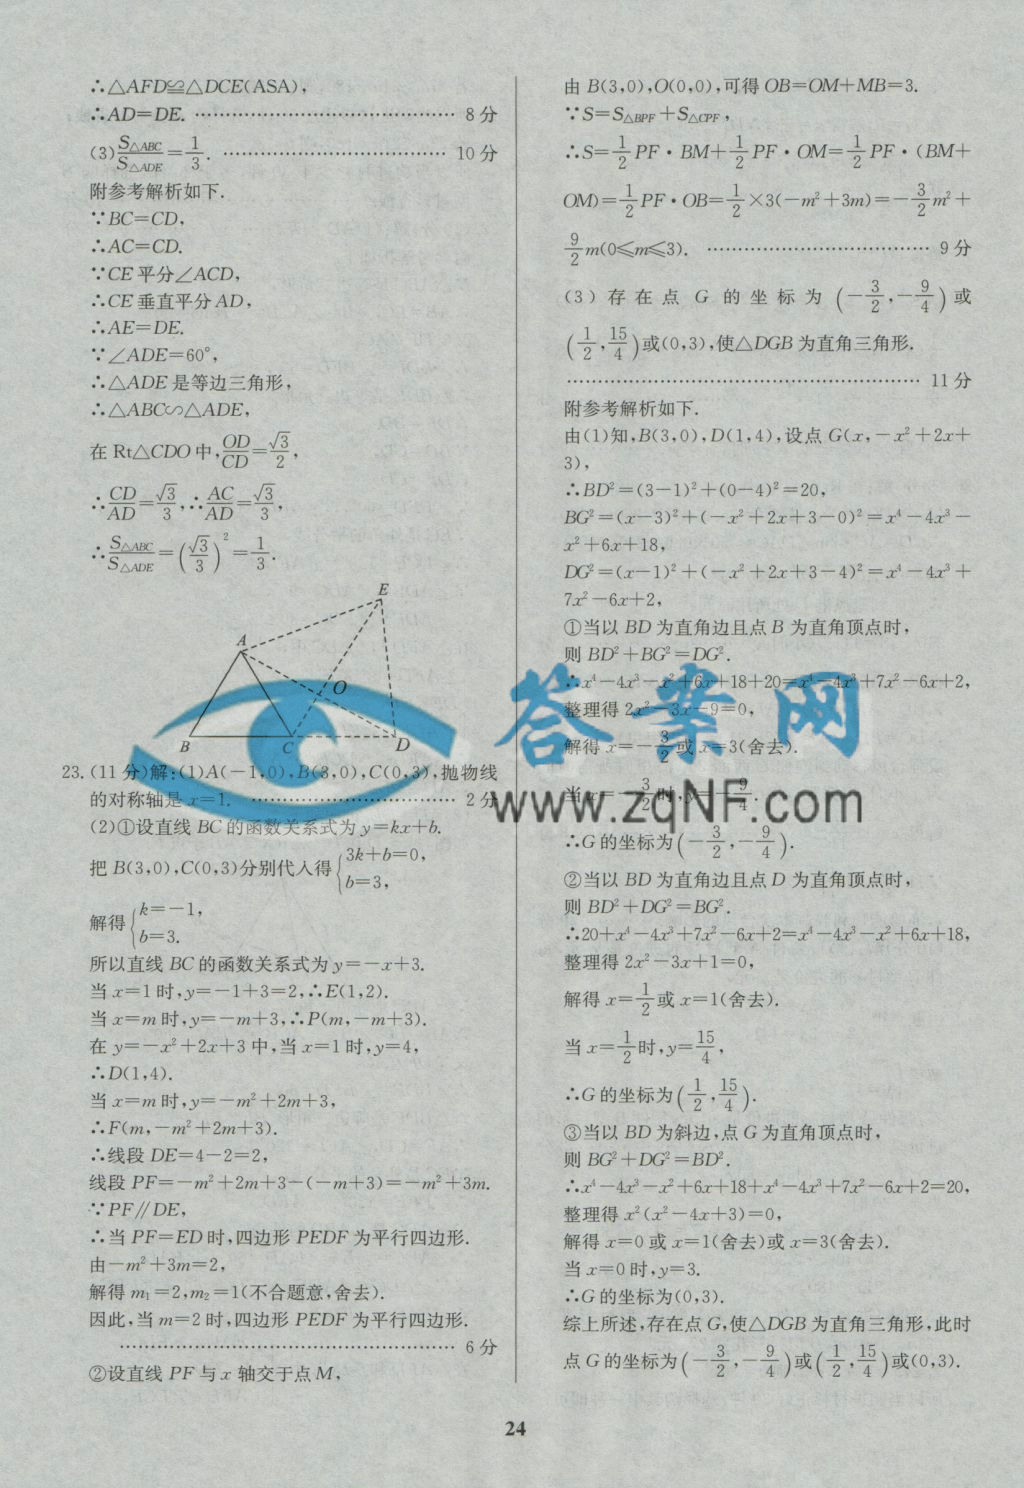 ∴△AFD≌△DCE(ASA),
∴AD=DE. …………………………………… 8分
(3)S△ABC/S△ADE=1/3. ……………………………… 10分
附参考解析如下.
∵BC=CD,
∴AC=CD.
∵CE平分∠ACD,
∴CE垂直平分AD,
∴AE=DE.
∵∠ADE=60°,
∴△ADE是等边三角形,
∴△ABC∽△ADE,
在Rt△CDO中,OD/CD=√3/2,
∴CD/AD=√3/3,∴AC/AD=√3/3,
∴S△ABC/S△ADE=(√3/3)²=1/3.
E
A
O
B C D
23.(11分)解:(1)A(-1,0),B(3,0),C(0,3),抛物线
的对称轴是x=1. …………………………… 2分
(2)①设直线BC的函数关系式为y=kx+b.
把B(3,0),C(0,3)分别代入得{3k+b=0,
b=3,
解得{k=-1,
b=3.
所以直线BC的函数关系式为y=-x+3.
当x=1时,y=-1+3=2,∴E(1,2).
当x=m时,y=-m+3,∴P(m,-m+3).
在y=-x²+2x+3中,当x=1时,y=4,
∴D(1,4).
当x=m时,y=-m²+2m+3,
∴F(m,-m²+2m+3).
∴线段DE=4-2=2,
线段PF=-m²+2m+3-(-m+3)=-m²+3m.
∵PF∥DE,
∴当PF=ED时,四边形PEDF为平行四边形.
由-m²+3m=2,
解得m₁=2,m₂=1(不合题意,舍去).
因此,当m=2时,四边形PEDF为平行四边形.
……………………………………………… 6分
②设直线PF与x轴交于点M,
由B(3,0),O(0,0),可得OB=OM+MB=3.
∵S=S△BPF+S△CPF,
∴S=1/2PF·BM+1/2PF·OM=1/2PF·(BM+
OM)=1/2PF·OB=1/2×3(-m²+3m)=-3/2m²+
9/2m(0≤m≤3). ……………………………… 9分
(3)存在点G的坐标为(-3/2,-9/4)或
(1/2,15/4)或(0,3),使△DGB为直角三角形.
………………………………………………… 11分
附参考解析如下.
由(1)知,B(3,0),D(1,4),设点G(x,-x²+2x+
3),
∴BD²=(3-1)²+(0-4)²=20,
BG²=(x-3)²+(-x²+2x+3-0)²=x⁴-4x³-
x²+6x+18,
DG²=(x-1)²+(-x²+2x+3-4)²=x⁴-4x³+
7x²-6x+2,
①当以BD为直角边且点B为直角顶点时,
则BD²+BG²=DG².
∴x⁴-4x³-x²+6x+18+20=x⁴-4x³+7x²-6x+2,
整理得2x²-3x-9=0,
解得x=-3/2或x=3(舍去).
当x=-3/2时,y=-9/4.
∴G的坐标为(-3/2,-9/4).
②当以BD为直角边且点D为直角顶点时,
则BD²+DG²=BG².
∴20+x⁴-4x³+7x²-6x+2=x⁴-4x³-x²+6x+18,
整理得2x²-3x+1=0,
解得x=1/2或x=1(舍去).
当x=1/2时,y=15/4,
∴G的坐标为(1/2,15/4).
③当以BD为斜边,点G为直角顶点时,
则BG²+DG²=BD².
∴x⁴-4x³-x²+6x+18+x⁴-4x³+7x²-6x+2=20,
整理得x²(x²-4x+3)=0,
解得x=0或x=1(舍去)或x=3(舍去).
当x=0时,y=3.
∴G的坐标为(0,3).
综上所述,存在点G,使△DGB为直角三角形,此时
点G的坐标为(-3/2,-9/4)或(1/2,15/4)或(0,3).
24
答案网
www.zqNF.com